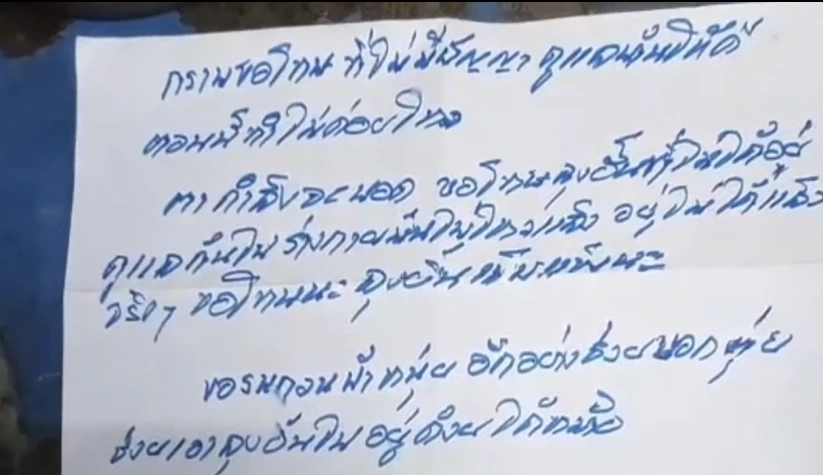 กราบขอโทษ ที่ไม่มีปัญญา ดูแลมันให้ดี
ตอนนี้ก็ไม่ค่อยไหว
ตา กำลังจะบอด ขอโทษลุงอั๋นที่ไม่ได้อยู่
ดูแลกันไป ร่างกายมันไม่ไหวแล้ว อยู่ไม่ได้แล้ว
จริงๆ ขอโทษนะ ลุงอั๋น
ขอรบกวนน้าหนุ่ย อีกอย่างช่วยบอก
ช่วยเอาลุงอั๋นไปอยู่ด้วย ได้ไหม